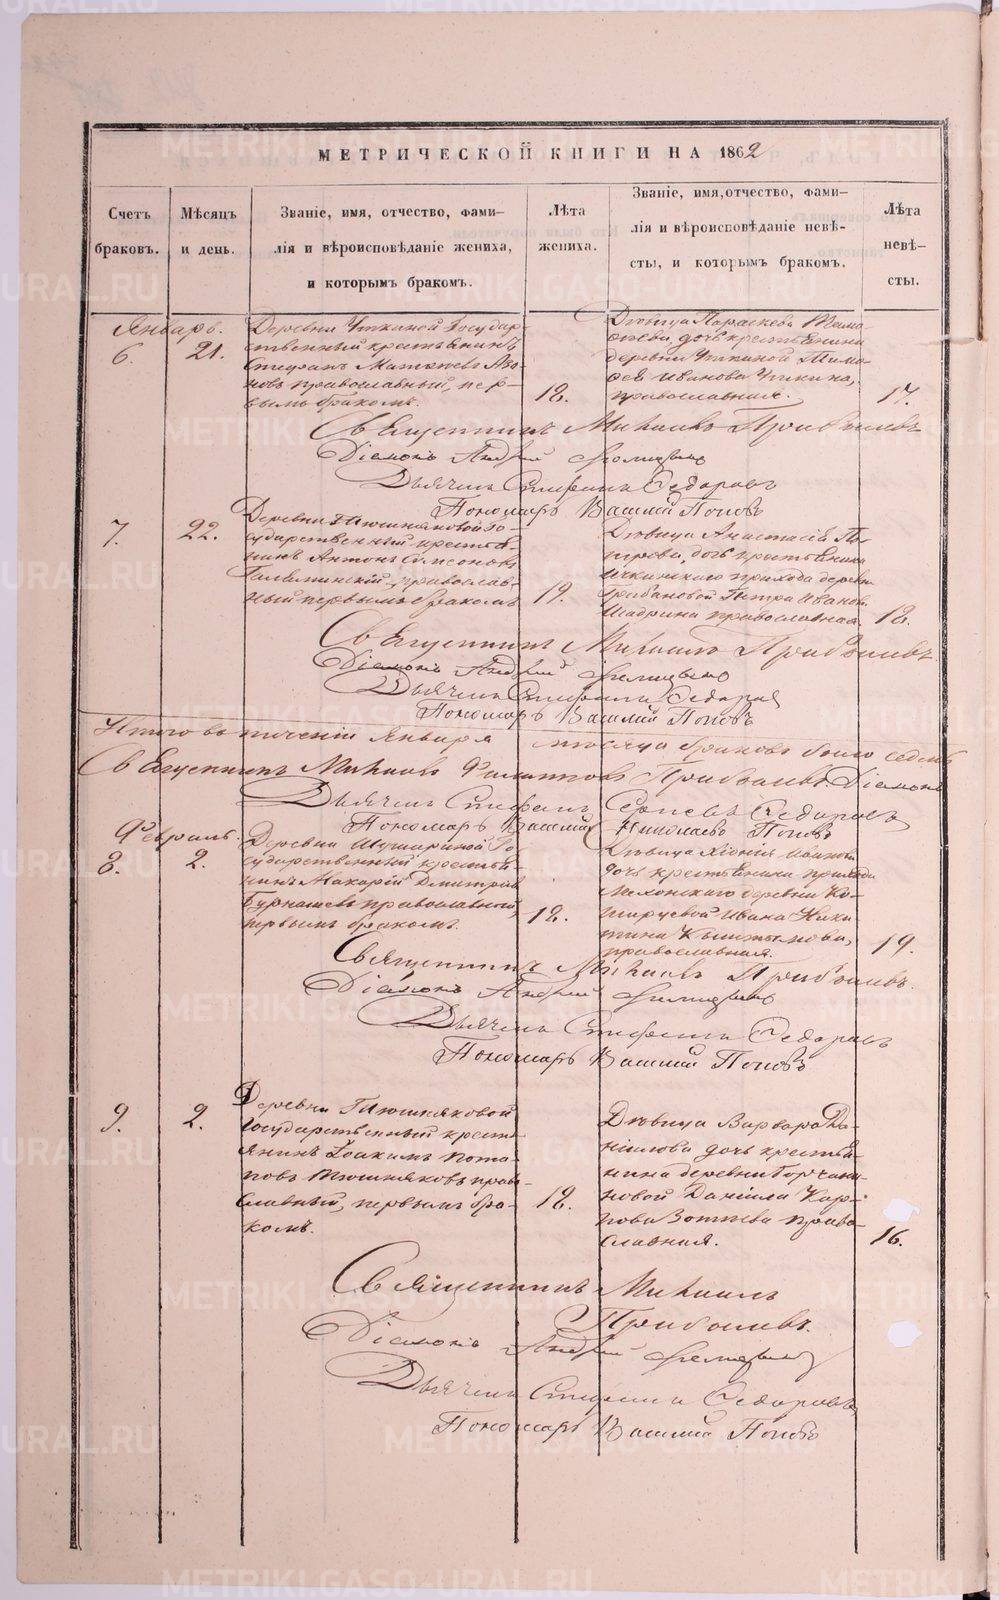 МЕТРИЧЕСКОЙ КНИГИ НА 1862
Счетъ
браковъ.
Мѣсяцъ
и день.
Званіе, имя, отчество, фами-
лія и вѣроисповѣданіе жениха,
и которымъ бракомъ.
Лѣта
жениха.
Званіе, имя, отчество, фами-
лія и вѣроисповѣданіе невѣ-
сты, и которымъ бракомъ.
Лѣта
невѣ-
сты.
Январь.
6.
21.
Деревни Уткиной Государ-
ственный крестьянинъ
Стефанъ
православный, пер-
вымъ бракомъ.
18.
Дѣвица Параскева Тимо-
феева, дочь крестьянина
деревни Уткиной Тимо-
фея Иванова
православная.
17.
Священникъ Михаилъ Прибылевъ
Діаконъ Андрей
Дьячекъ Стефанъ Федоровъ
Пономарь Василій Поповъ
7.
22.
Деревни Тюшняковой Го-
сударственный крестья-
нинъ Антонъ Самсоновъ
православ-
ный первымъ бракомъ
19.
Дѣвица Анастасія Пе-
трова, дочь крестьянина
Ичкинскаго прихода деревни
Грибановой Петра Иванова
Шадрина православная.
18.
Священникъ Михаилъ Прибылевъ.
Діаконъ Андрей
Дьячекъ Стефанъ Федоровъ
Пономарь Василій Поповъ
Итого въ теченіи Января мѣсяца браковъ было седмь
Священникъ Михаилъ Филипповъ Прибылевъ Діаконъ
Дьячекъ Стефанъ Сергѣевъ Федоровъ
Пономарь Василій Николаевъ Поповъ
Февраль.
8.
2.
Деревни Шушариной Го-
сударственный крестья-
нинъ Макарій Дмитріевъ
Бурнашевъ православный,
первымъ бракомъ.
18.
Дѣвица Хіонія Иванова
дочь крестьянина прихода
Мехонскаго деревни
Ивана Ники-
тина
православная.
19.
Священникъ Михаилъ Прибылевъ.
Діаконъ Андрей
Дьячекъ Стефанъ Федоровъ
Пономарь Василій Поповъ
9.
2.
Деревни Тюшняковой
Государственный кресть-
янинъ Іоакимъ Пота-
повъ Тюшняковъ право-
славный, первымъ бра-
комъ.
18.
Дѣвица Варвара Да-
нилова дочь крестья-
нина деревни
Даніила Кар-
пова Зотѣева право-
славная.
16.
Священникъ Михаилъ
Прибылевъ.
Діаконъ Андрей
Дьячекъ Стефанъ Федоровъ
Пономарь Василій Поповъ
METRIKI.GASO-URAL.RU